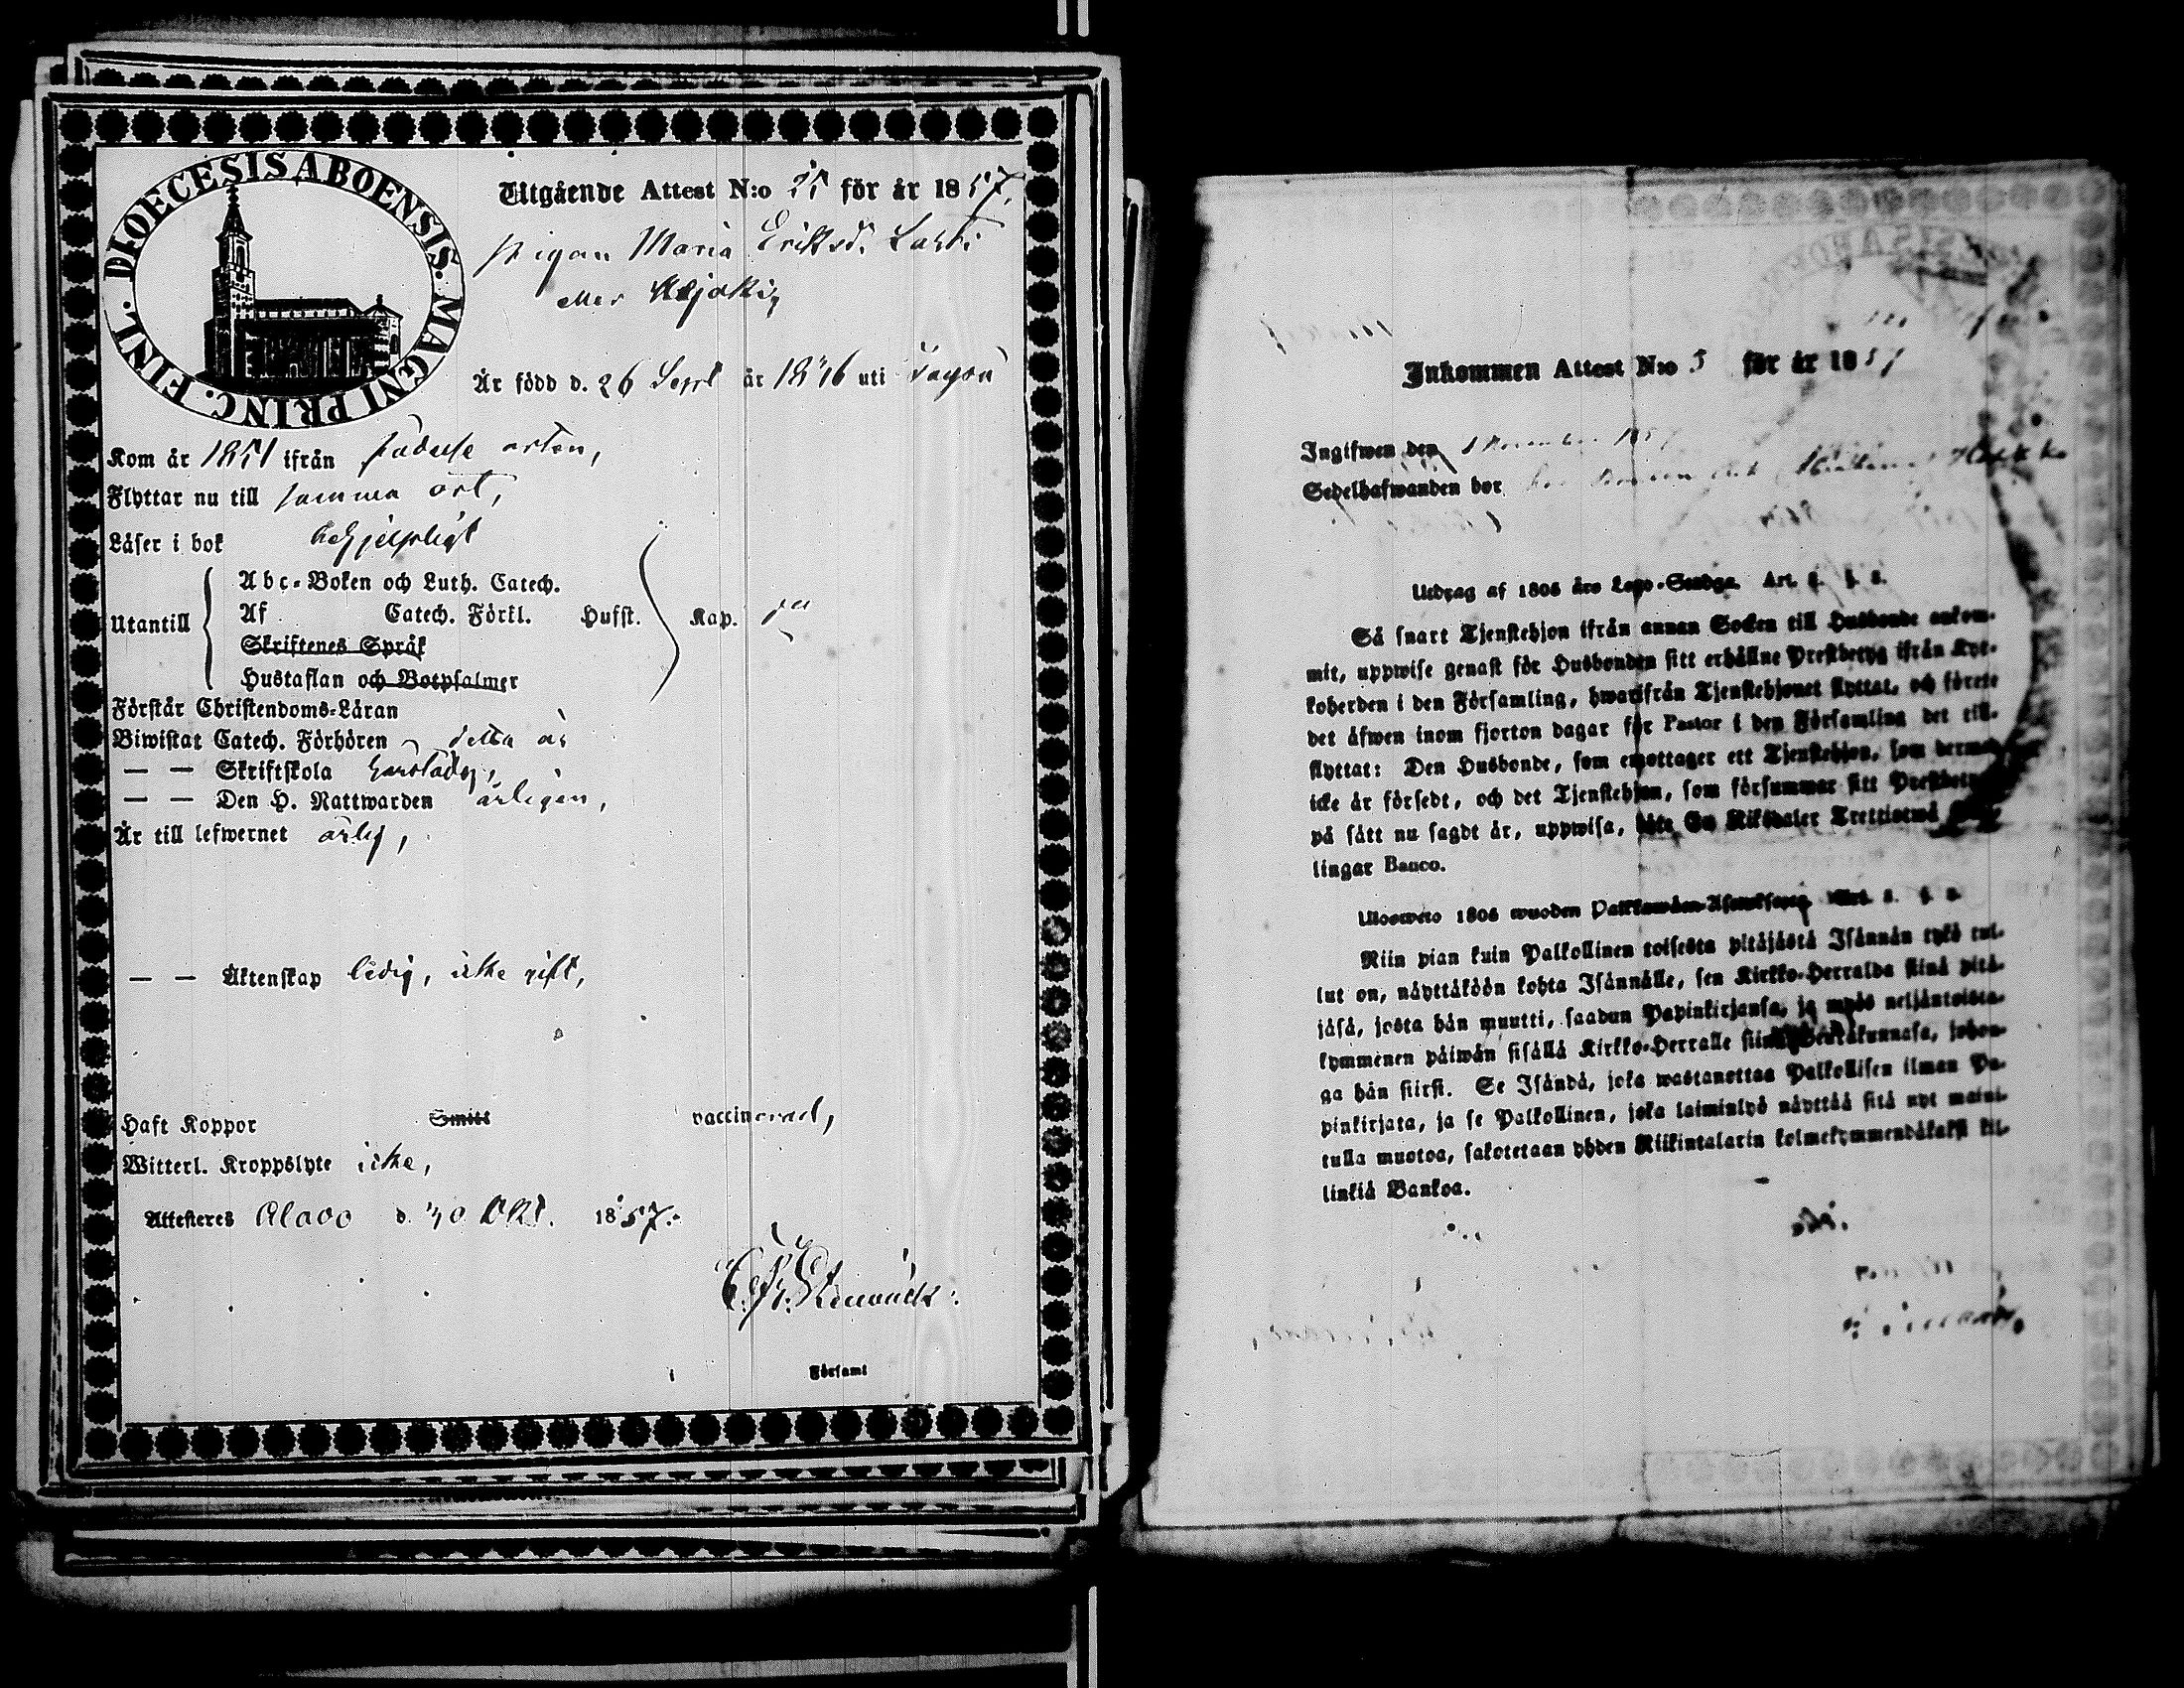 DIOECESIS ABOENSIS. MAGNI PRINC. FINL.
Utgående Attest N:o 55 för år 1857.
pigan Maria Eriksd. Lahti
eller
Är född d. 26 Sept år uti
Kom år 1851 ifrån födelse orten,
Flyttar nu till samma ort,
Läser i bok behjelpligt
Utantill
Abc-Boken och Luth. Catech.
Af Catech. Förkl. Husst. Kap.
Skriftenes Språk
Hustaflan och Botpsalmer
Förstår Christendoms-Läran
Biwistat Catech. Förhören detta år
— — Skriftskola
— — Den H. Nattwarden årligen,
Är till lefwernet ärlig,
— — Äktenskap ledig, icke gift,
Haft Koppor Smitt vaccinerad,
Witterl. Kroppslyte icke,
Attesteres Alavo d. 30 Okt. 1857.
Församl
Inkommen Attest N:o 5 för år 1857
Ingifwen den November 1857
Sedelhafwanden bor hos
Utdrag af 1805 års Lego-Stadga. Art. §.
Så snart Tjenstehjon ifrån annan Socken till Husbonde ankom-
mit, uppwise genast för Husbonden sitt erhållne Prestbetyg ifrån Kyr-
koherden i den Församling, hwarifrån Tjenstehjonet flyttat, och förete
det äfwen inom fjorton dagar för Pastor i den Församling det till-
flyttat: Den Husbonde, som emottager ett Tjenstehjon, som dermed
icke är försedt, och det Tjenstehjon, som försummar sitt Prestbetyg
på sätt nu sagdt är, uppwisa, böte En Riksdaler Trettiotwå
lingar Banco.
Ulosweto 1805 wuoden Palkkawäen-Asetuksesta. Art. §.
Niin pian kuin Palkollinen toisesta pitäjästä Isännän tykö tul-
lut on, näyttäköön kohta Isännälle, sen Kirkko-Herralda siinä pitä-
jäsä, josta hän muutti, saadun Papinkirjansa, ja myös neljäntoista-
kymmenen päiwän sisällä Kirkko-Herralle siinä Seurakunnasa, johon-
ga hän siirsi. Se Isändä, joka wastanottaa Palkollisen ilman Pa-
pinkirjata, ja se Palkollinen, joka laiminlyö näyttää sitä nyt maini-
tulla muotoa, sakotetaan yhden Riikintalarin kolmekymmendäkaksi kil-
linkiä Bankoa.